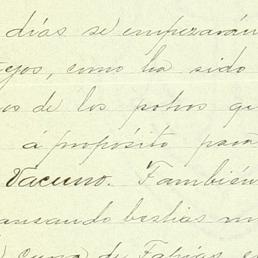 días se empezarán
como ha sido
de los potros que
á propósito para
Vacuno. También
bestias
cuna de Fabias